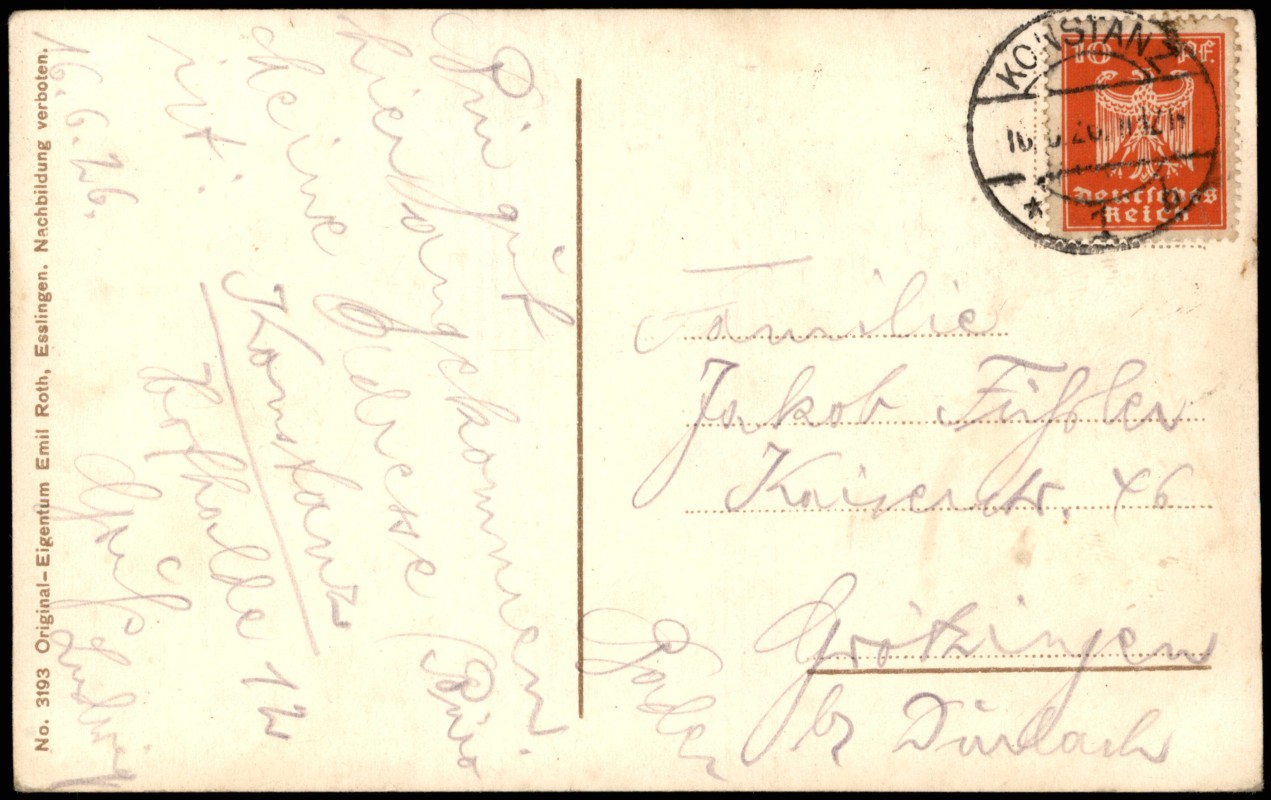 16.6.26.
Bin gut
hier angekommen.
Meine Adresse
ist:
Konstanz
Gruß
Ludwig
Familie
Jakob Füßler
Kaiserstr. 46
Grötzingen
b/ Durlach
Baden
KONSTANZ
* 1
10 Pf.
Deutsches
Reich
No. 3193 Original-Eigentum Emil Roth, Esslingen. Nachbildung verboten.